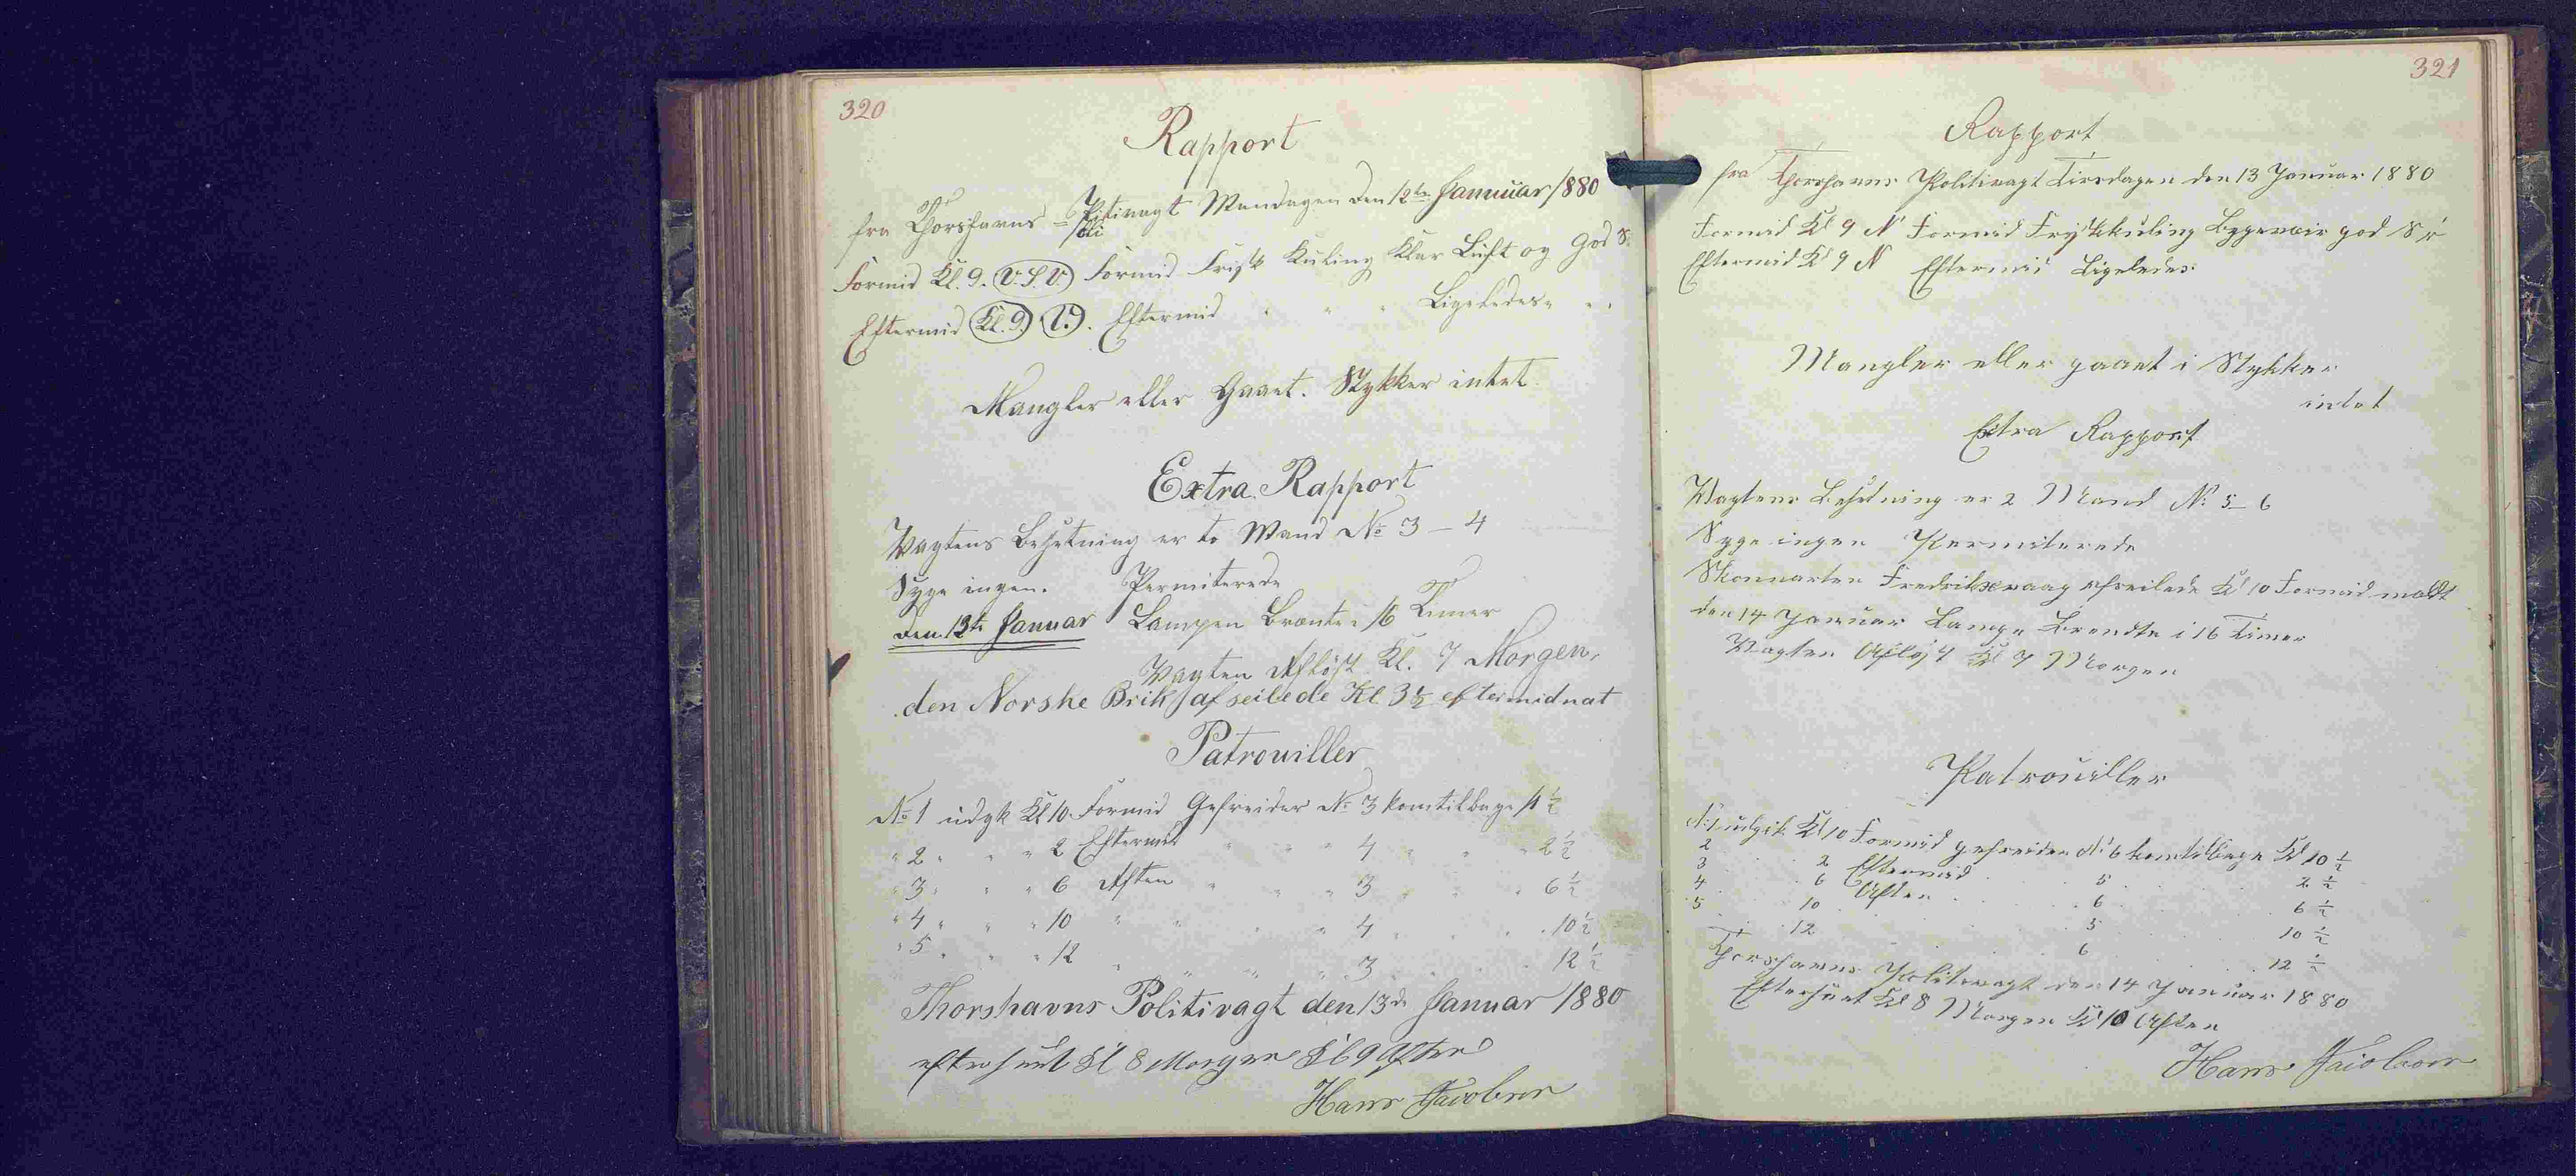 320
Rapport
fra Thorshavns = Politivagt Mandagen den 12te Januuar 1880
Formid Kl. 9. V. S. V. Formid Frisk Kuling Klar Luft og God S.
Eftermid Kl. 9. V. Eftermid " " " Ligeledes " "
Mangler eller Gaaet. Stykker intet
Extra Rapport
Vagtens Besetning er to Mand No 3 - 4
Syge ingen. Permiterede
den 13te Januar Lampen Brænte i 16 Timer
Vagten Afløst Kl. 7 Morgen,
den Norske Brik afseilede Kl 3 1/2 eftermidnat
Patrouiller
No 1 udgk Kl 10 Formid Gefreider No 3 komtilbage 11 1/2
" 2 " " " 2 Eftermid " " " 4 " " " 2 1/2
" 3 " " " 6 Aften " " " 3 " " " 6 1/2
" 4 " " " 10 " " " " 4 " " " 10 1/2
" 5 " " " 12 " " " " 3 " " " 12 1/2
Thorshavns Politivagt den 13de Januar 1880
efterseet Kl 8 Morgen Kl 9 Aften
Hans Jacobsen
321
Rapport
fra Thorshavns Politivagt Tirsdagen den 13 Januar 1880
Formid Kl 9 N Formid Frydkkuling Bygeveir god Sø
Eftermid Kl 9 N Eftermid Ligeledes
Mangler eller gaaet i Stykker
intet
Extra Rapport
Vagtens Besetning er 2 Mand No 5 - 6
Syge ingen Permiterede
Skonnarten Fredriksvaag afseilede Kl 10 Formid
den 14 Januar Lampe Brendte i 16 Timer
Vagten Afløst Kl 7 Morgen
Patrouiller
No 1 udgik Kl 10 Formid gefreider No 6 komtilbage Kl 10 1/2
2 2 Eftermid 5 2 1/2
3 6 Aften 6 6 1/2
4 10 5 10 1/2
5 12 6 12 1/2
Thorshavns Politivagt den 14 Januar 1880
Efterseet Kl 8 Morgen Kl 10 Aften
Hans Jacobsen